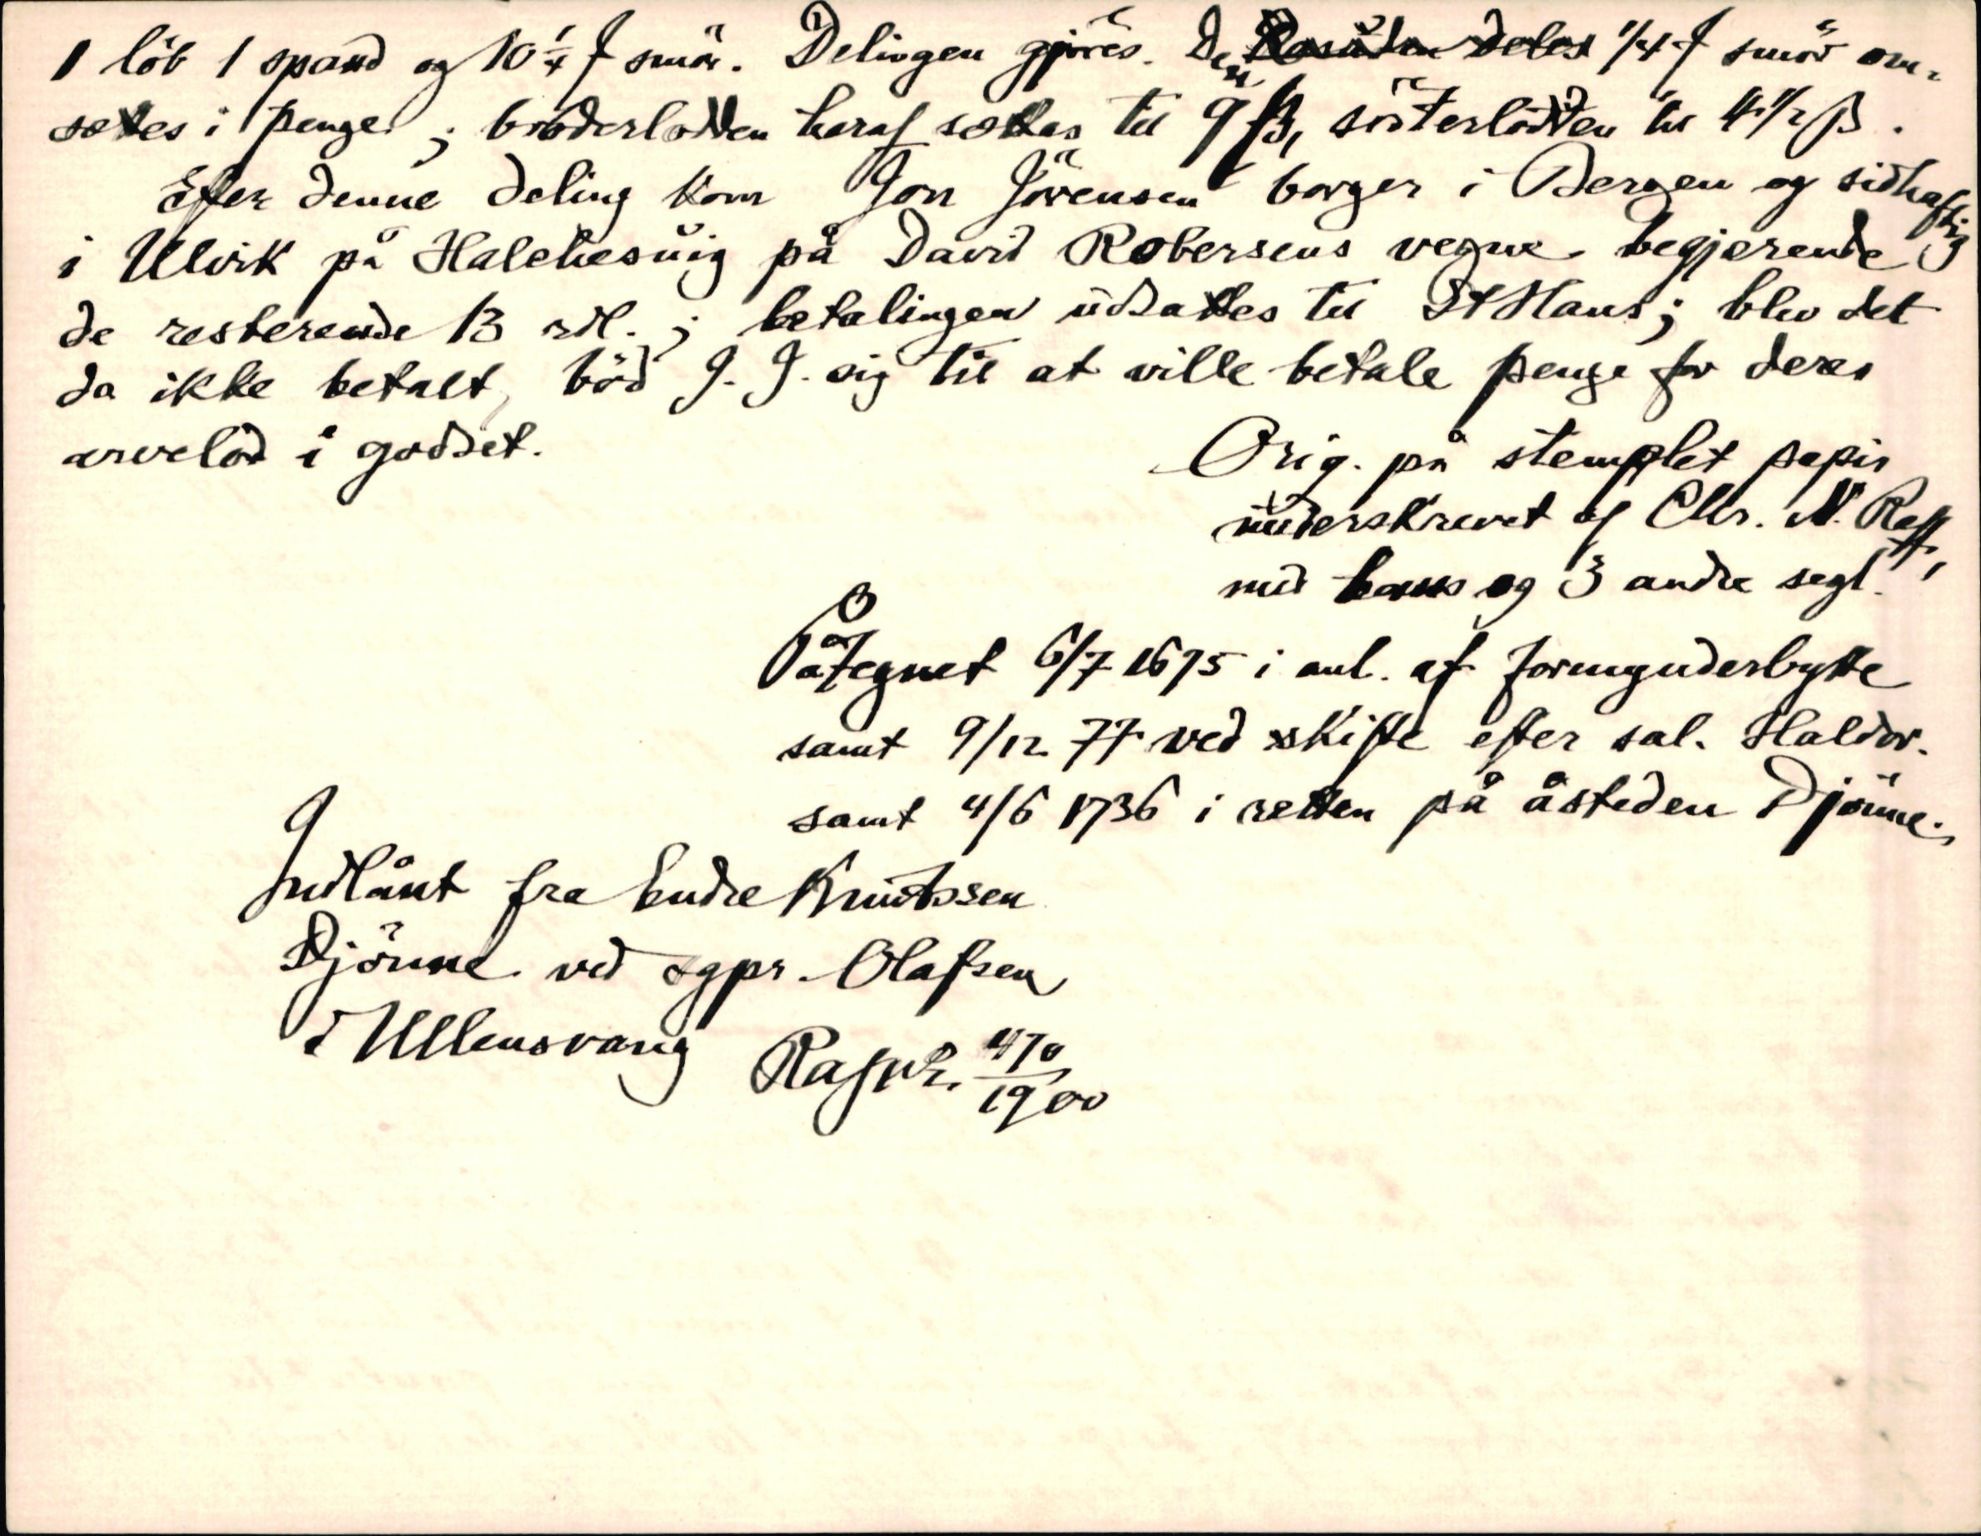 1 löb 1 spand og 10 1/4 ℔ smör. Delingen gjöres. Den 1/4 ℔ smör om-
sættes i penge; broderlodden heraf sættes til 9 β, sösterlodden til 4 1/2 β.
Efter denne deling kom Jon Jörensen borger i Bergen og sidhaftig
i Ulvik på Halehesvig på David Robersens vegne begjærende
de resterende 13 rdl.; betalingen udsattes til St Hans; blev det
da ikke betalt, böd J. J. sig til at ville betale penge for deres
arvelod i godset.
Orig. på stemplet papir
underskrevet af Chr. N. Raff,
med hans og 3 andre segl.
Påtegnet 6/7 1675 i anl. af formynderbytte
samt 9/12 77 ved skifte efter sal. Haldor.
samt 4/6 1736 i retten på åsteden Djönne.
Indlånt fra Endre Knutssen
Djönne ved sgpr. Olafsen
i Ullensvang Rafpr. 470
1900